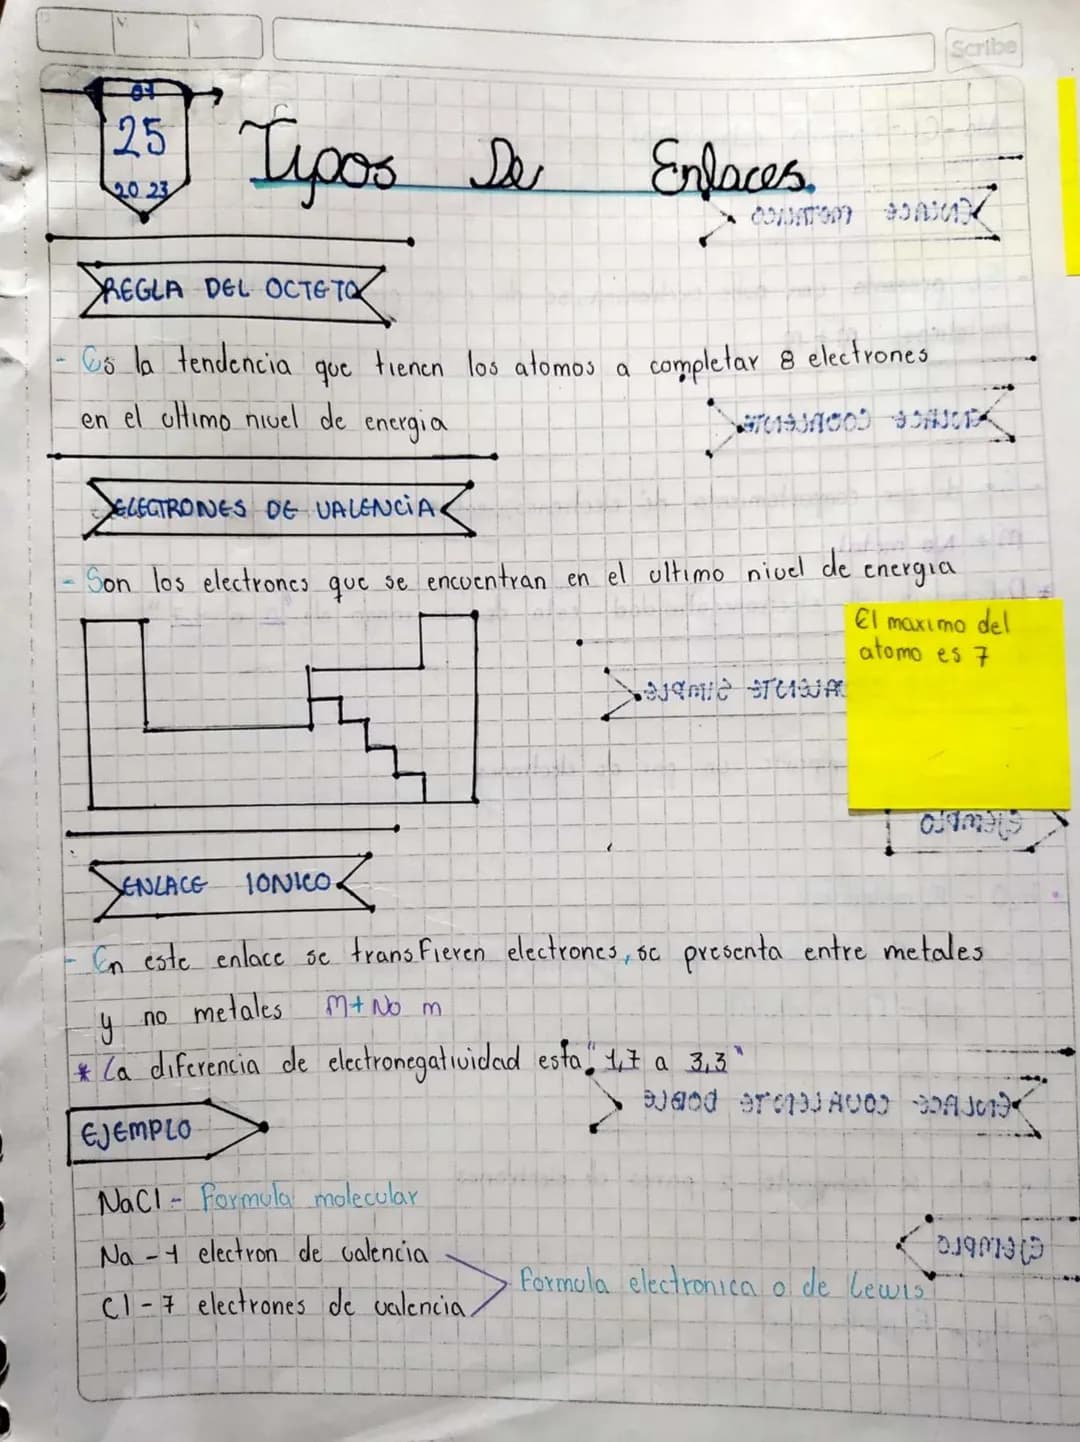 Scribe
07
25
20 23
Tipos De Enlaces.
REGLA DEL OCTETO
- Es la tendencia que tienen los atomos a completar 8 electrones
en el ultimo nivel de energia
ELECTRONES DE VALENCIA
- Son los electrones que se encuentran en el ultimo nivel de energia
El maximo del
atomo es 7
ENLACE IONICO
- En este enlace se transfieren electrones, se presenta entre metales
y no metales M+ No m
* La diferencia de electronegatividad esta "1,7 a 3,3"
EJEMPLO
NaCl - Formula molecular
Na - 1 electron de valencia
Cl - 7 electrones de valencia
Formula electronica o de Lewis